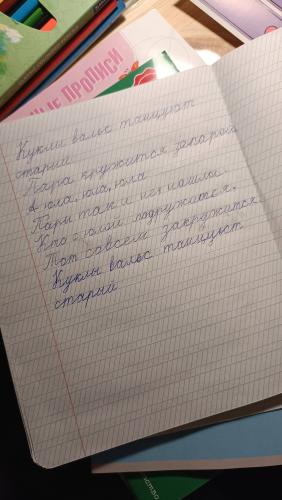 ные прописи
Куклы вальс танцуют
старый
Пара кружится запарой
А юла, юла, юла
Пары так и не нашла
Кто с юлой подружится,
Тот совсем закружится
Куклы вальс танцуют
старый
ство